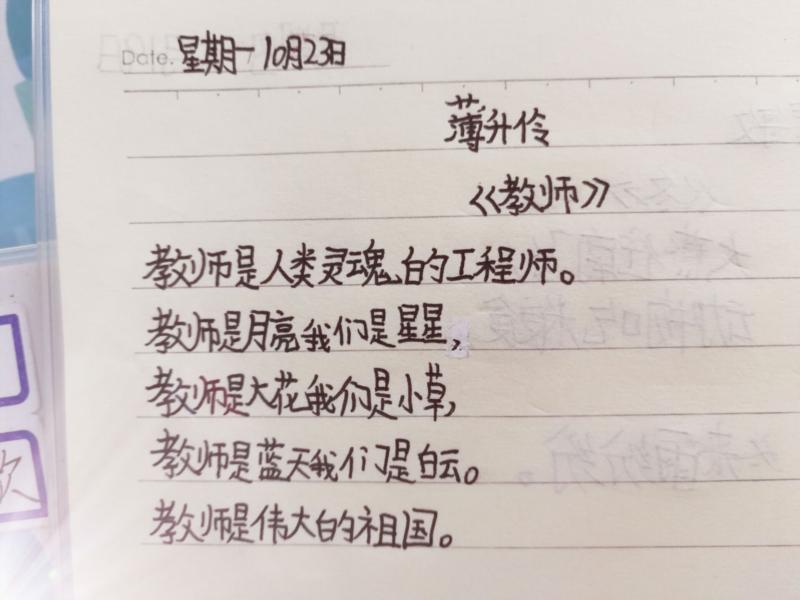 Date. 星期一10月23日
薄升伶
《教师》
教师是人类灵魂的工程师。
教师是月亮我们是星星,
教师是大花我们是小草,
教师是蓝天我们是白云。
教师是伟大的祖国。
欠